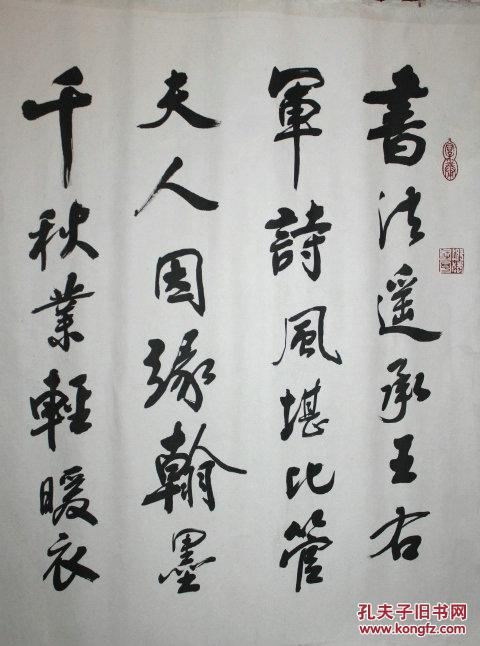 書法遥承王右
軍詩風堪比管
夫人因緣翰墨
千秋業輕暖衣
孔夫子旧书网
www.kongfz.com